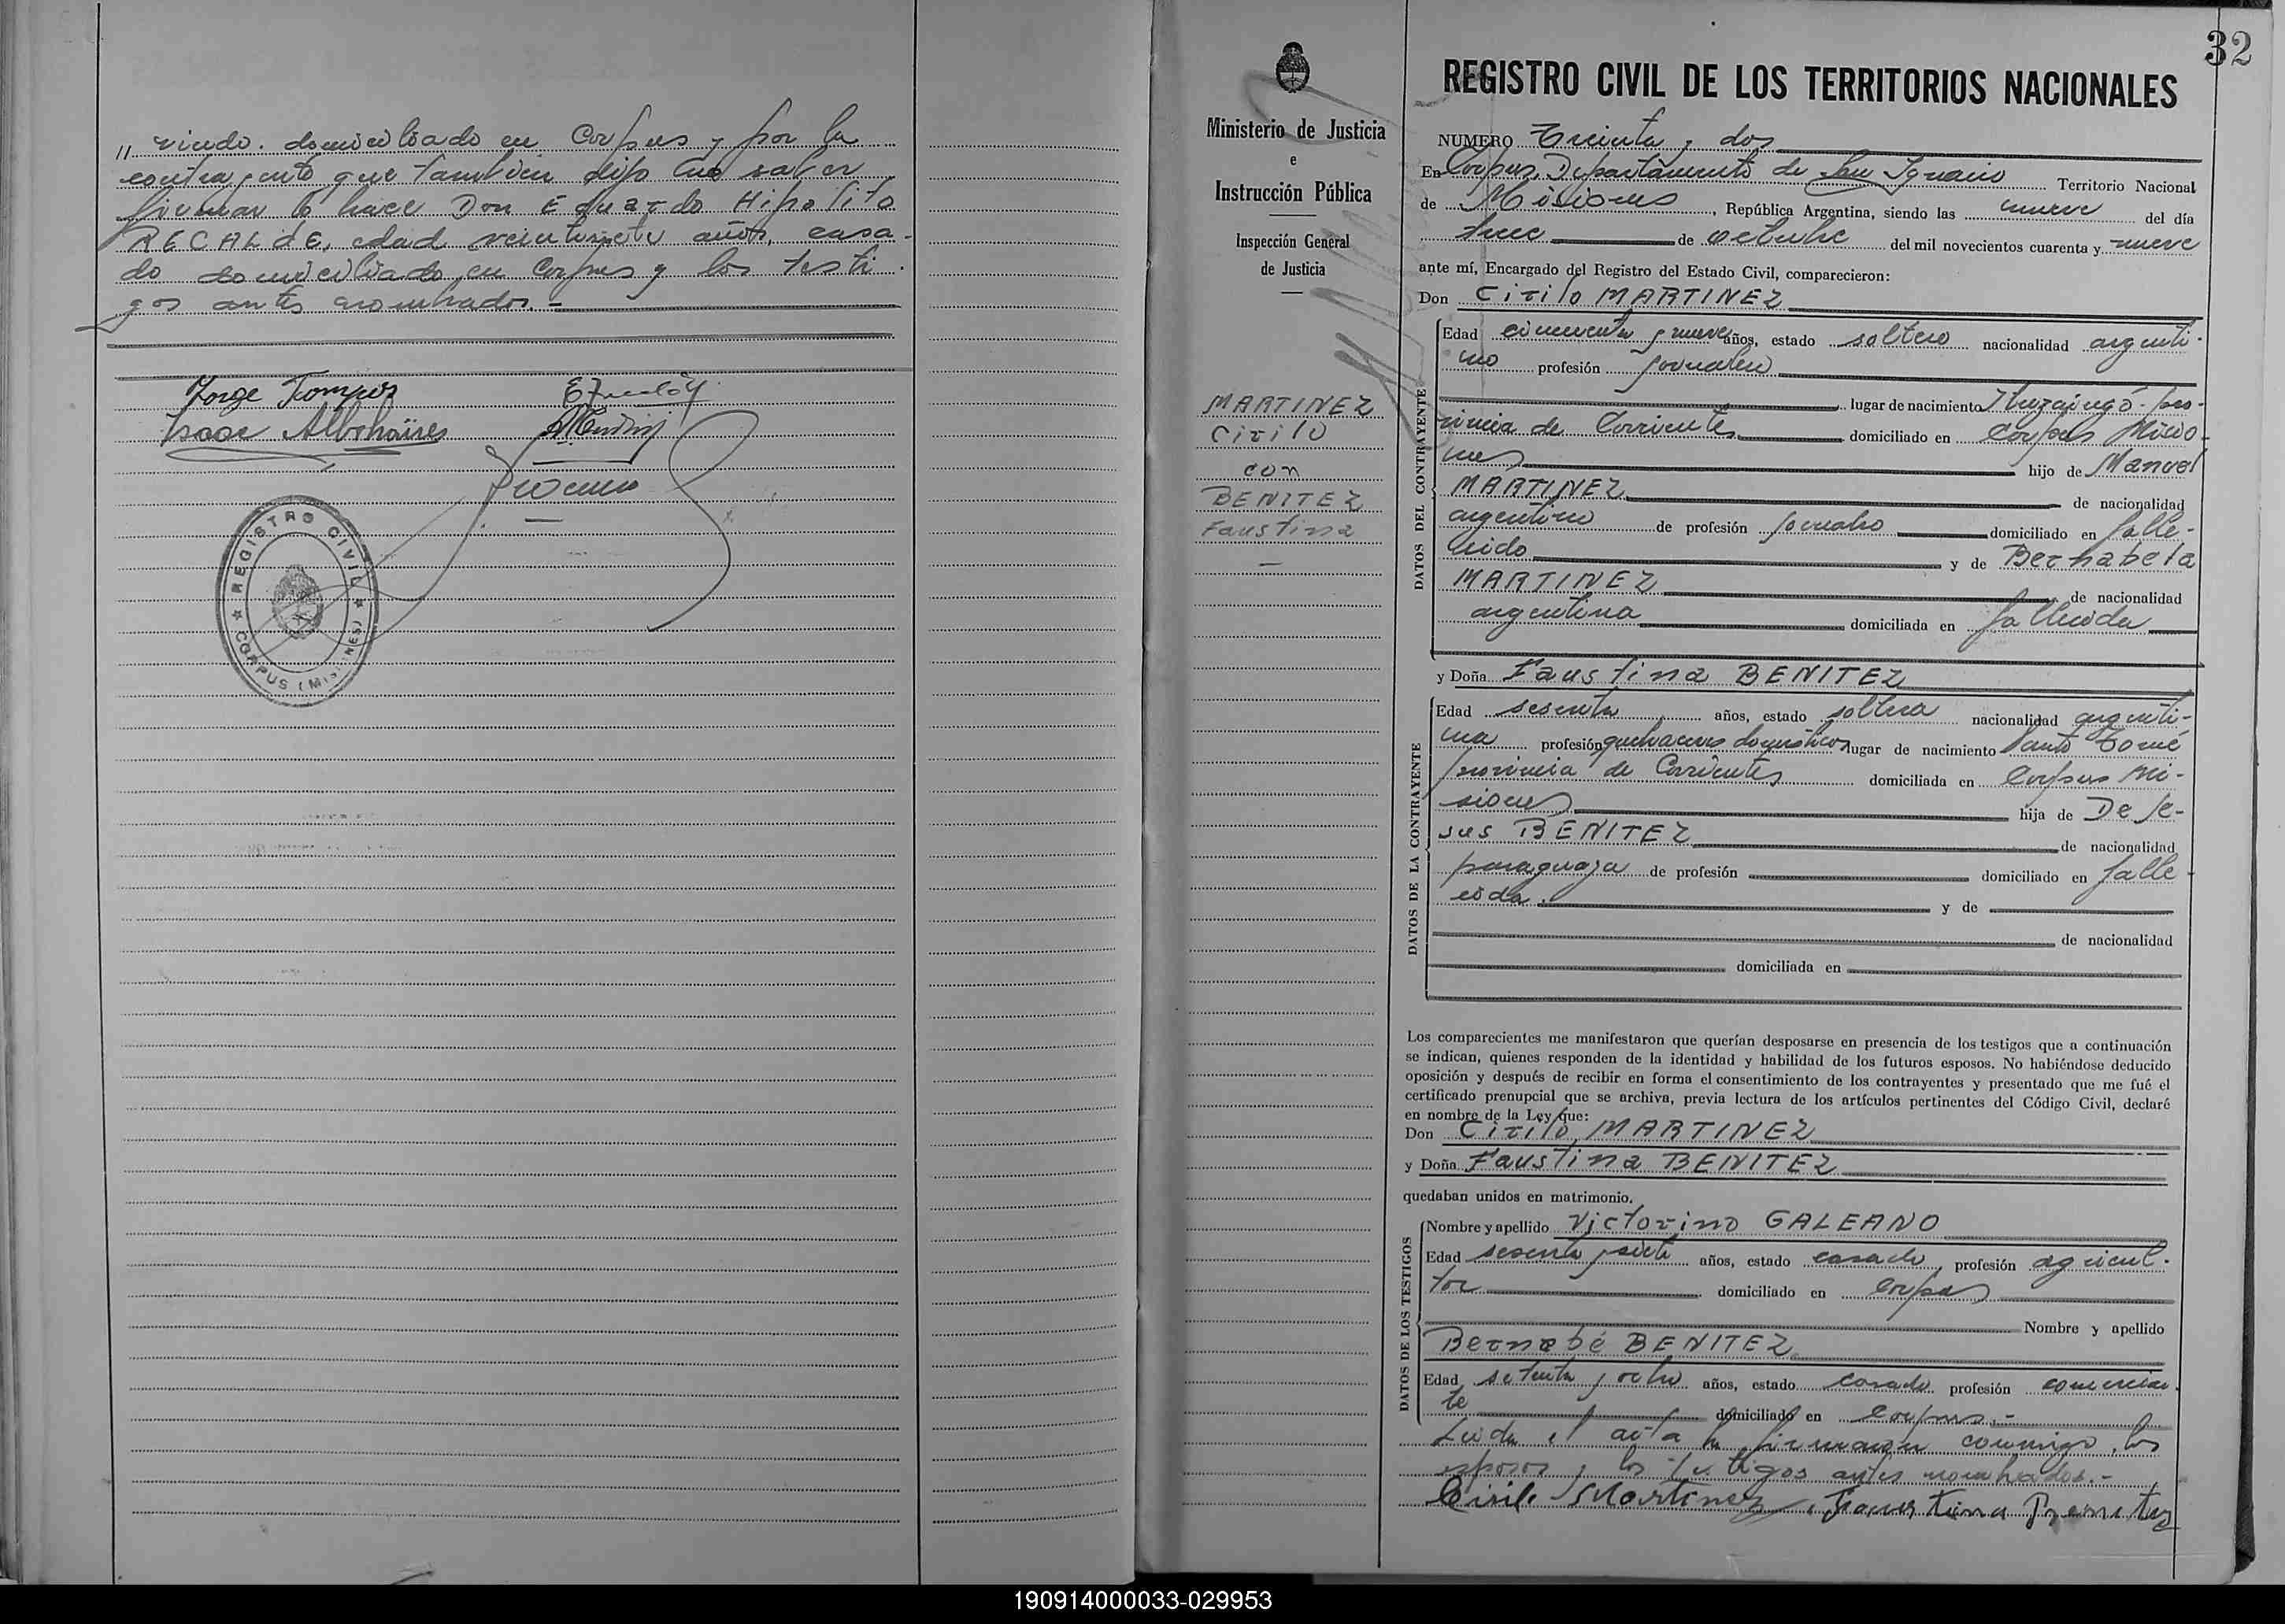 " viudo. domiciliado en Corpus y por la
contrayente que también dijo no saber
firmar lo hace Don Eduardo Hipolito
RECALdE, edad veintisiete años, casa-
do domiciliado en Corpus y los testi-
gos antes nombrados.-
Jorge
Isaac
REGISTRO CIVIL
CORPUS (MISIONES)
32
Ministerio de Justicia
e
Instrucción Pública
Inspección General
de Justicia
MARTINEZ
Cirilo
con
BENITEZ
Faustina
REGISTRO CIVIL DE LOS TERRITORIOS NACIONALES
NUMERO Treinta y dos
En Corpus, Departamento de San Ignacio Territorio Nacional
de Misiones, República Argentina, siendo las nueve del día
trece de octubre del mil novecientos cuarenta y nueve
ante mí, Encargado del Registro del Estado Civil, comparecieron:
Don Cirilo MARTINEZ
DATOS DEL CONTRAYENTE
Edad cincuenta y nueve años, estado soltero nacionalidad argenti-
no profesión jornalero
lugar de nacimiento Ituzaingó-pro-
vincia de Corrientes domiciliado en Corpus Misio-
nes hijo de Manuel
MARTINEZ de nacionalidad
argentino de profesión domiciliado en falle-
cido y de Bernabela
MARTINEZ de nacionalidad
argentina domiciliada en fallecida
y Doña Faustina BENITEZ
DATOS DE LA CONTRAYENTE
Edad sesenta años, estado soltera nacionalidad argenti-
na profesión quehaceres domésticos lugar de nacimiento Santo Tomé
provincia de Corrientes domiciliada en Corpus Mi-
siones hija de De Je-
sus BENITEZ de nacionalidad
paraguaya de profesión domiciliado en falle-
cida. y de
de nacionalidad
domiciliada en
Los comparecientes me manifestaron que querían desposarse en presencia de los testigos que a continuación
se indican, quienes responden de la identidad y habilidad de los futuros esposos. No habiéndose deducido
oposición y después de recibir en forma el consentimiento de los contrayentes y presentado que me fué el
certificado prenupcial que se archiva, previa lectura de los artículos pertinentes del Código Civil, declaré
en nombre de la Ley que:
Don Cirilo MARTINEZ
y Doña Faustina BENITEZ
quedaban unidos en matrimonio.
DATOS DE LOS TESTIGOS
Nombre y apellido Victorino GALEANO
Edad sesenta y siete años, estado casado, profesión agricul-
tor domiciliado en Corpus
Nombre y apellido
Bernabé BENITEZ
Edad setenta y ocho años, estado casado profesión comercian-
te domiciliado en Corpus.-
Leida el acta la firmaron conmigo, los
esposos y los testigos antes nombrados.-
Cirilo Martinez Faustina Benitez
190914000033-029953